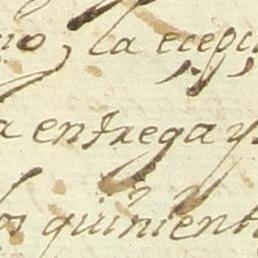 no, la ecepci
a entrega y
los quinient